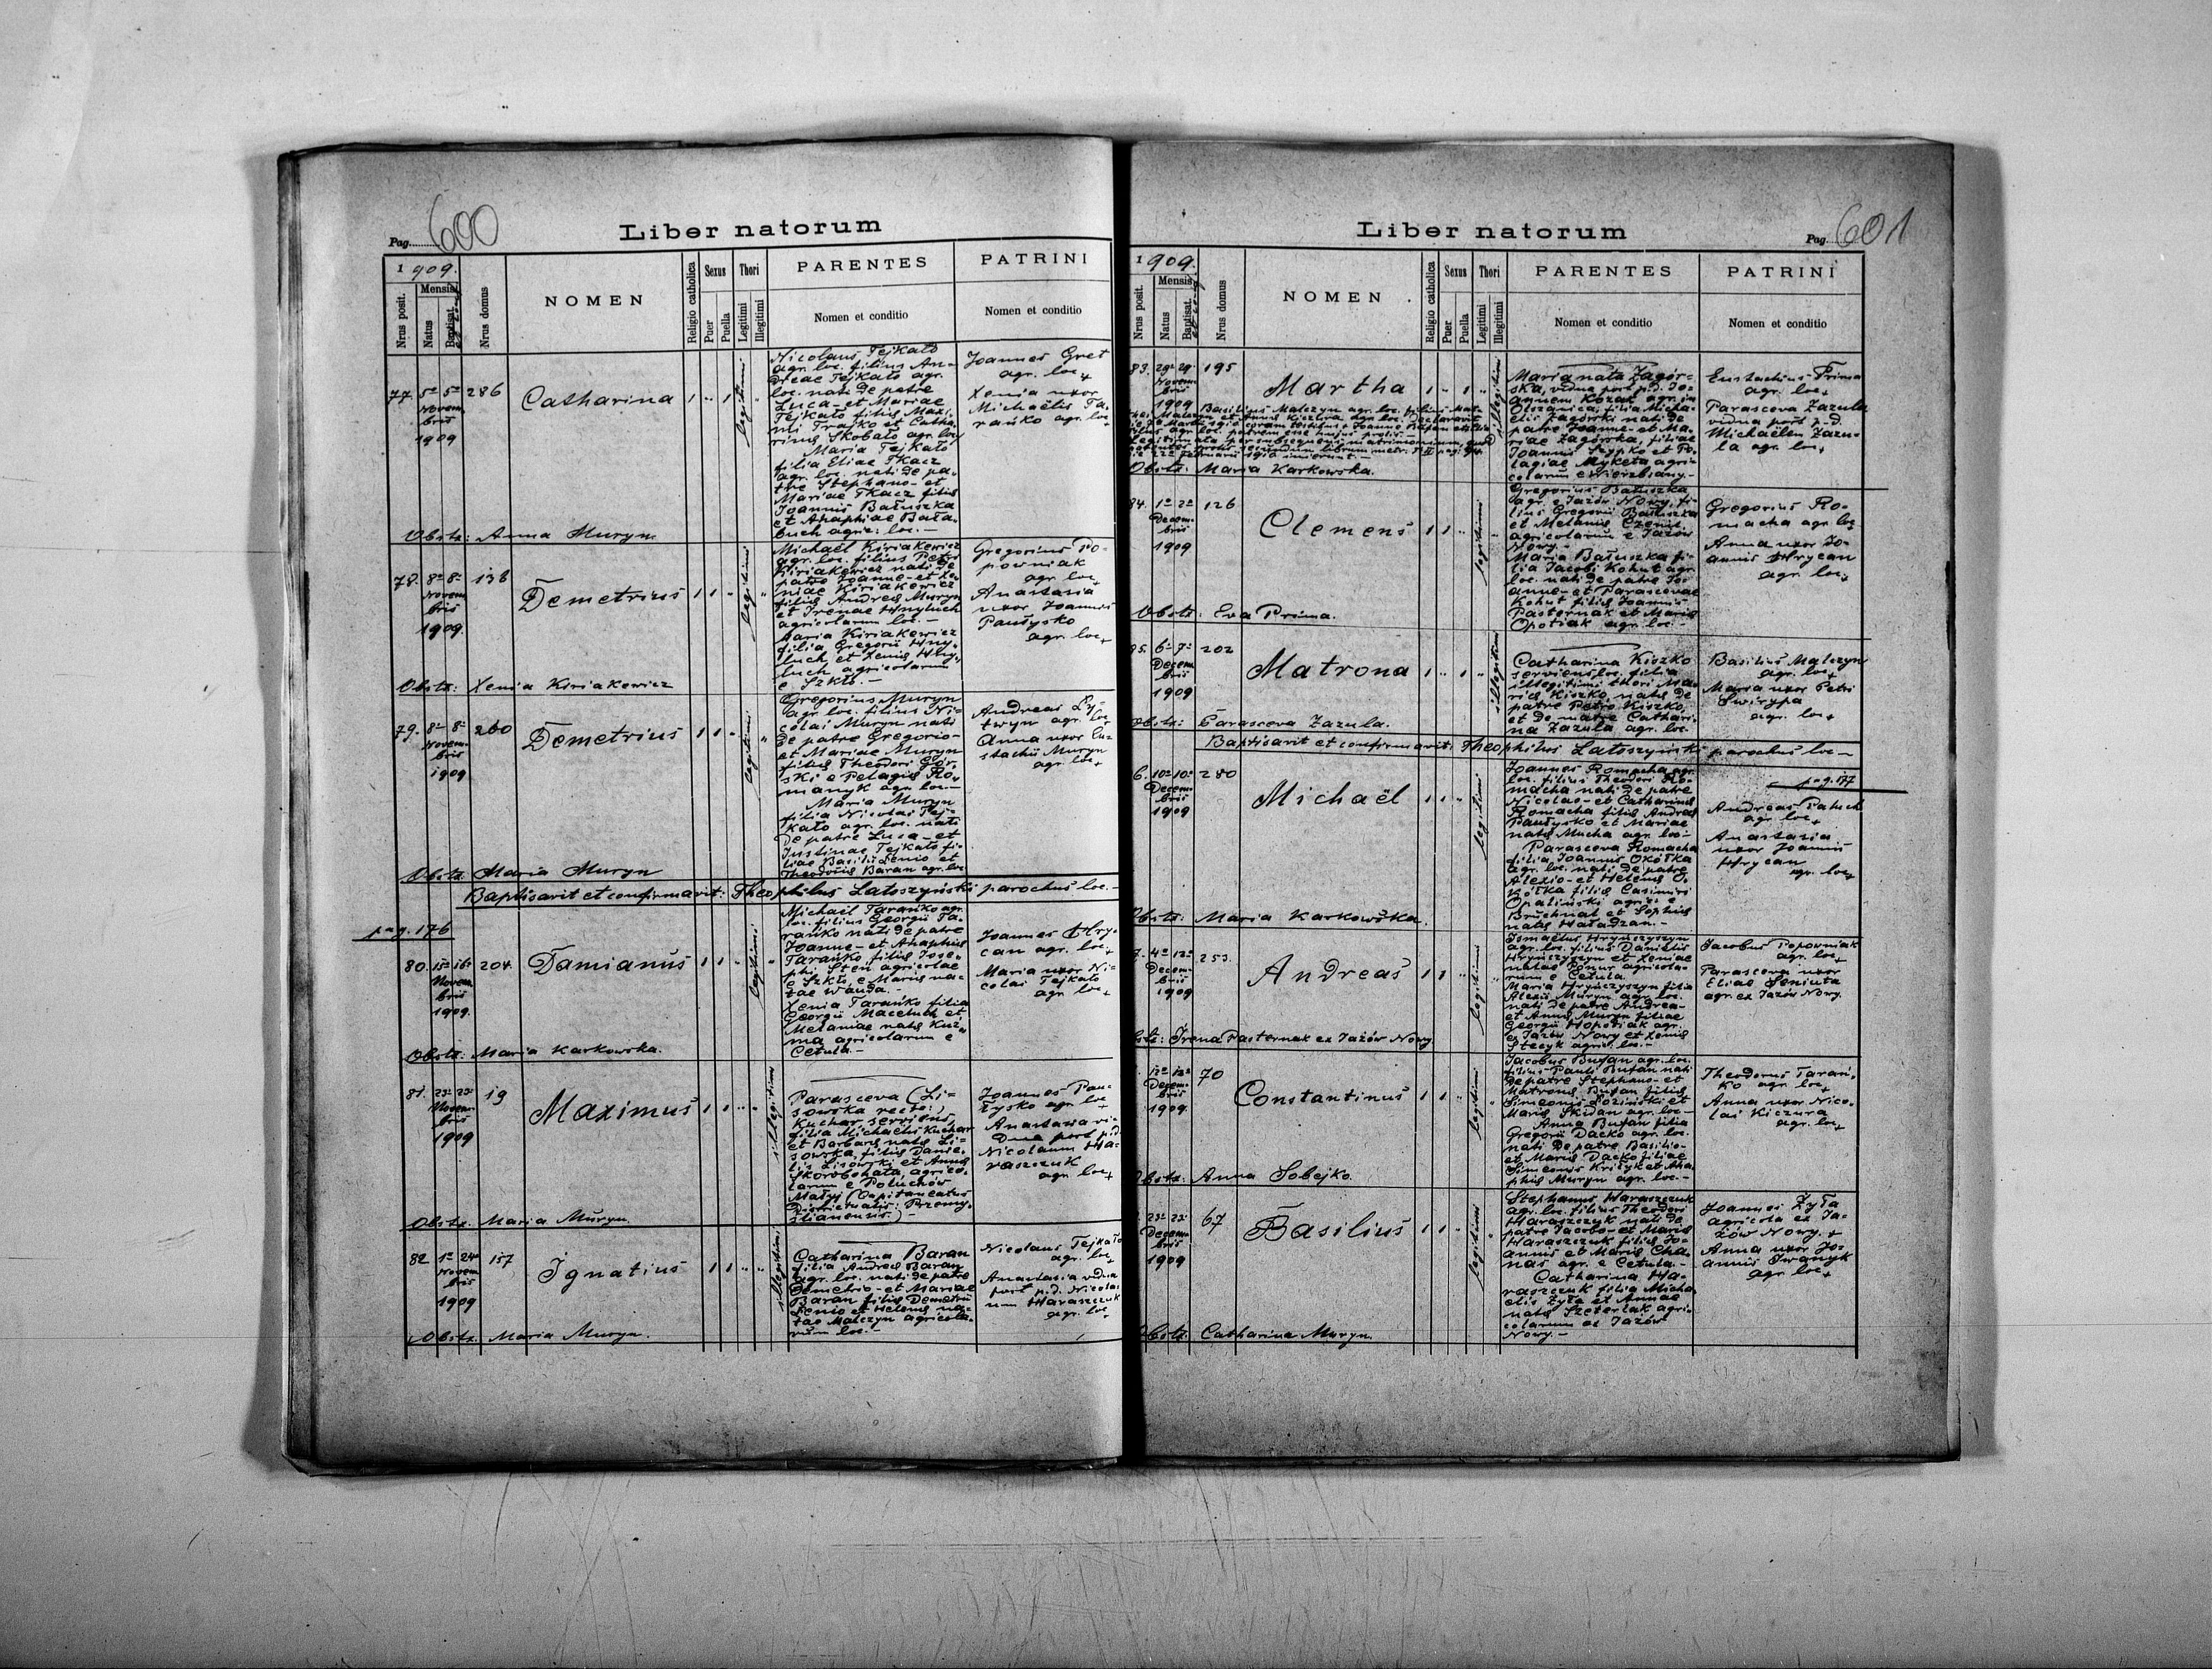 Pag. 600
Liber natorum
1909.
Nrus posit.
Mensis
Natus
Baptisat.
Nrus domus
NOMEN
Religio catholica
Sexus
Puer
Puella
Thori
Legitimi
Illegitimi
PARENTES
Nomen et conditio
PATRINI
Nomen et conditio
77. 5a 5a Novembris 1909
286
Catharina
legitimi
Nicolaus Tejkało
agr. loc. filius An-
dreae Tejkało agr.
loc. nati de patre
Luca - et Mariae
Tejkało filiae Maxi-
mi Trajko et Catha-
rinae Skobało agr. loc.
Maria Tejkało
filia Eliae Tkacz
agr. loc. nati de pa-
tre Stephano - et
Mariae Tkacz filiae
Joannis Bałuszka
et Ahaphiae Bała-
buch agric. loc. -
Joannes Gret
agr. loc.
Xenia uxor
Michaëlis Ta-
rańko agr. loc.
Obstr: Anna Muryn.
78. 8a 8a Novembris 1909.
138
Demetrius
legitimi
Michaël Kiriakewicz
agr. loc. filius Petri
Kiriakewicz nati de
patre Joanne - et Xe-
niae Kiriakewicz
filiae Andreae Muryn
et Irenae Hnyluch
agricolarum loc. -
Maria Kiriakewicz
filia Gregorii Hny-
luch et Xeniae Hny-
luch agricolarum
e Szkło. -
Gregorius Po-
powniak
agr. loc.
Anastasia
uxor Joannis
Pauzysko
agr. loc.
Obstr: Xenia Kiriakewicz
79. 8a 8a Novembris 1909
260
Demetrius
legitimi
Gregorius Muryn
agr. loc. filius Ni-
colai Muryn nati
de patre Gregorio -
et Mariae Muryn
filiae Theodori Gór-
ski e Pelagiae Ro-
manyk agr. loc. -
Maria Muryn
filia Nicolai Tej-
kało agr. loc. nati
de patre Luca - et
Justinae Tejkało fi-
liae Basilii Senio et
Theodosiae Baran agr. loc.
Andreas Ły-
twyn agr. loc.
Anna uxor Eu-
stachii Muryn
agr. loc.
Obstr. Maria Muryn
Baptisavit et confirmavit: Theophilus Latoszyński parochus loc. -
pag. 176
80. 15a 16a Novembris 1909.
204
Damianus
legitimi
Michaël Tarańko agr.
loc. filius Georgii Ta-
rańko nati de patre
Joanne - et Ahaphiae
Tarańko filiae Jose-
phi Steń agricolae
e Szkło, e Mariae na-
tae Wanda. -
Xenia Tarańko filia
Georgii Maceluch et
Melaniae natae Kuź-
ma agricolarum e
Cetula. -
Joannes Hry-
can agr. loc.
Maria uxor Ni-
colai Tejkało
agr. loc.
Obstr: Maria Karkowska.
81. 23a 23a Novembris 1909
19
Maximus
illegitimi
Parasceva (Li-
sowska recte:)
Kuchar, serviens,
filia Michaëlis Kuchar
et Barbarae natae Li-
sowska, filiae Danie-
lis Lisowski et Annae
Skorobohata agrico-
larum e Poluchów
Mały (Capitaneatus
Districtualis: Przemy-
ślianensis). -
Joannes Pau-
zysko agr. loc.
Anastasia vi-
dua post p.d.
Nicolaum Ha-
raszczuk
agr. loc.
Obstr. Maria Muryn.
82. 1a 24a Novembris 1909
157
Ignatius
illegitimi
Catharina Baran
filia Andreae Baran
agr. loc. nati de patre
Demetrio - et Mariae
Baran filiae Demetrii
Senio et Helenae na-
tae Malczyn agricola-
rum loc. -
Nicolaus Tejkało
agr. loc.
Anastasia vidua
post p.d. Nicola-
um Haraszczuk
agr. loc.
Obstr. Maria Muryn.
Liber natorum
Pag. 601
1909.
Nrus posit.
Mensis
Natus
Baptisat.
Nrus domus
NOMEN
Religio catholica
Sexus
Puer
Puella
Thori
Legitimi
Illegitimi
PARENTES
Nomen et conditio
PATRINI
Nomen et conditio
83. 29a 29a Novembris 1909
195
Martha
illegitimi
Maria nata Zagór-
ska, vidua post p.d. Jo-
annem Kozak agr. in
Olszanica, filia Micha-
ëlis Zagórski nati de
patre Joanne - et Ma-
riae Zagórska, filiae
Joannis Szypko et Pe-
lagiae Myketa agri-
colarum e Wierzbiany. -
Eustachius Prima
agr. loc.
Parasceva Zazula
vidua post p.d.
Michaëlem Zazu-
la agr. loc.
Basilius Malczyn agr. loc. filius
Obstr: Maria Karkowska.
84. 1a 2a Decembris 1909
126
Clemens
legitimi
Gregorius Bałuszka
agr. e Jazów Nowy, fi-
lius Gregorii Bałuszka
et Melaniae Czernis,
agricolarum e Jazów
Nowy. -
Maria Bałuszka fi-
lia Jacobi Kohut agr.
loc. nati de patre Jo-
anne - et Parascevae
Kohut filiae Joannis
Pasternak et Mariae
Opotiak agr. loc. -
Gregorius Ro-
macha agr. loc.
Anna uxor Jo-
annis Hrycan
agr. loc.
Obstr: Eva Prima.
85. 6a 7a Decembris 1909
202
Matrona
illegitimi
Catharina Kiszko
serviens loc. filia
illegitimi thori Ma-
riae Kiszko, natae de
patre Petro Kiszko,
et de matre Cathari-
na Zazula agr. loc.
Basilius Malczyn
agr. loc.
Maria uxor Petri
Świrypa
agr. loc.
Obstr: Parasceva Zazula.
Baptisavit et confirmavit: Theophilus Latoszyński parochus loc -
pag. 177
6. 10a 10a Decembris 1909
280
Michaël
legitimi
Joannes Romacha agr.
loc. filius Theodori Ro-
macha nati de patre
Nicolao - et Catharinae
Romacha filiae Andreae
Pauzysko et Mariae
natae Mucha agr. loc -
Parasceva Romacha
filia Joannis Okółka
agr. loc. nati de patre
Alexio - et Helenae O-
kółka filiae Casimiri
Opaliński agric. e
Bruchnal et Sophiae
natae Haładzan. -
Andreas Paluch
agr. loc.
Anastasia
uxor Joannis
Hrycan
agr. loc.
Obstr: Maria Karkowska.
7. 4a 12a Decembris 1909
253.
Andreas
legitimi
Ismaëlus Hryńczyszyn
agr. loc. filius Danielis
Hryńczyszyn et Xeniae
natae Ponur agricola-
rum e Cetula.
Maria Hryńczyszyn filia
Alexii Muryn agr. loc.
nati de patre Andrea -
et Annae Muryn filiae
Georgii Hopotiak agr.
e Jazów Nowy et Xeniae
Stecyk agric. loc. -
Jacobus Popowniak
agr. loc.
Parasceva uxor
Eliae Seniuta
agr. ex Jazów Nowy.
Obstr: Irena Pasternak ex Jazów Nowy
12a 12a Decembris 1909.
70
Constantinus
legitimi
Jacobus Bufan agr. loc.
filius Pauli Bufan nati
de patre Stephano - et
Matronae Bufan filiae
Simeonis Łoziński et
Mariae Skidan agr. loc -
Anna Bufan filia
Gregorii Dacko agr. loc.
nati de patre Basilio -
et Mariae Dacko filiae
Simeonis Kriłyk et Aha-
phiae Muryn agr. loc. -
Theodorus Tarań-
ko agr. loc.
Anna uxor Nico-
lai Kiczura
agr. loc.
Obstr. Anna Sobejko.
23a 23a Decembris 1909
67
Basilius
legitimi
Stephanus Haraszczuk
agr. loc. filius Theodori
Haraszczuk nati de
patre Jacobo - et Mariae
Haraszczuk filiae Jo-
annis et Mariae Cha-
nas agr. e Cetula. -
Catharina Ha-
raszczuk filia Micha-
ëlis Żyła et Annae
natae Szeterlak agri-
colarum ex Jazów
Nowy. -
Joannes Żyła
agricola ex Ja-
zów Nowy.
Anna uxor Jo-
annis Iwanyk
agr. loc.
Obstr. Catharina Muryn.